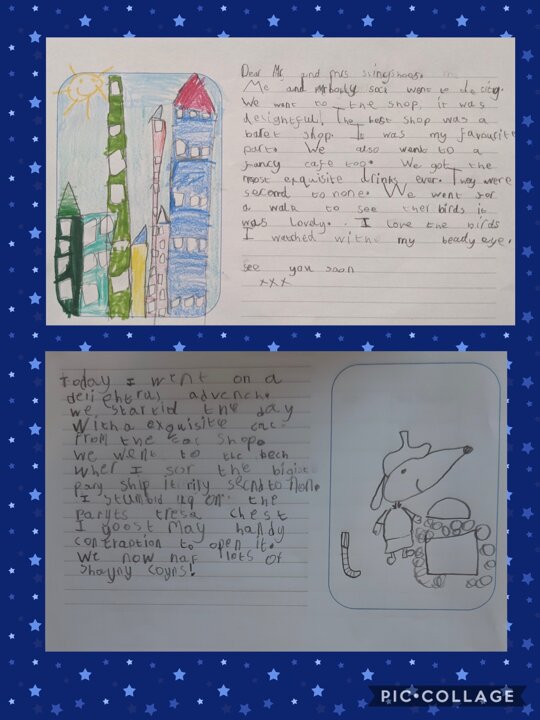 Dear Mr. and mrs
Me and my body went to
We went to the shop, it was
delightful! The best shop was a
balet shop. It was my favourite
part. We also went to a
fancy cafe too. We got the
most exquisite drinks ever. They were
second to none. We went for
a walk to see ther birds it
was lovely. I love the birds
I watched withe my beady eye.
see you soon
xxx
today I went on a
advenche
we startid the day
With a exquisite
from the shop.
we went to the bech
wher I sor the
ship it rily secnd to none.
I stumbld upon the
tresa chest
I goost May handy
contraption to open it.
We now haf lots of
Shayny Coyns!
PIC•COLLAGE